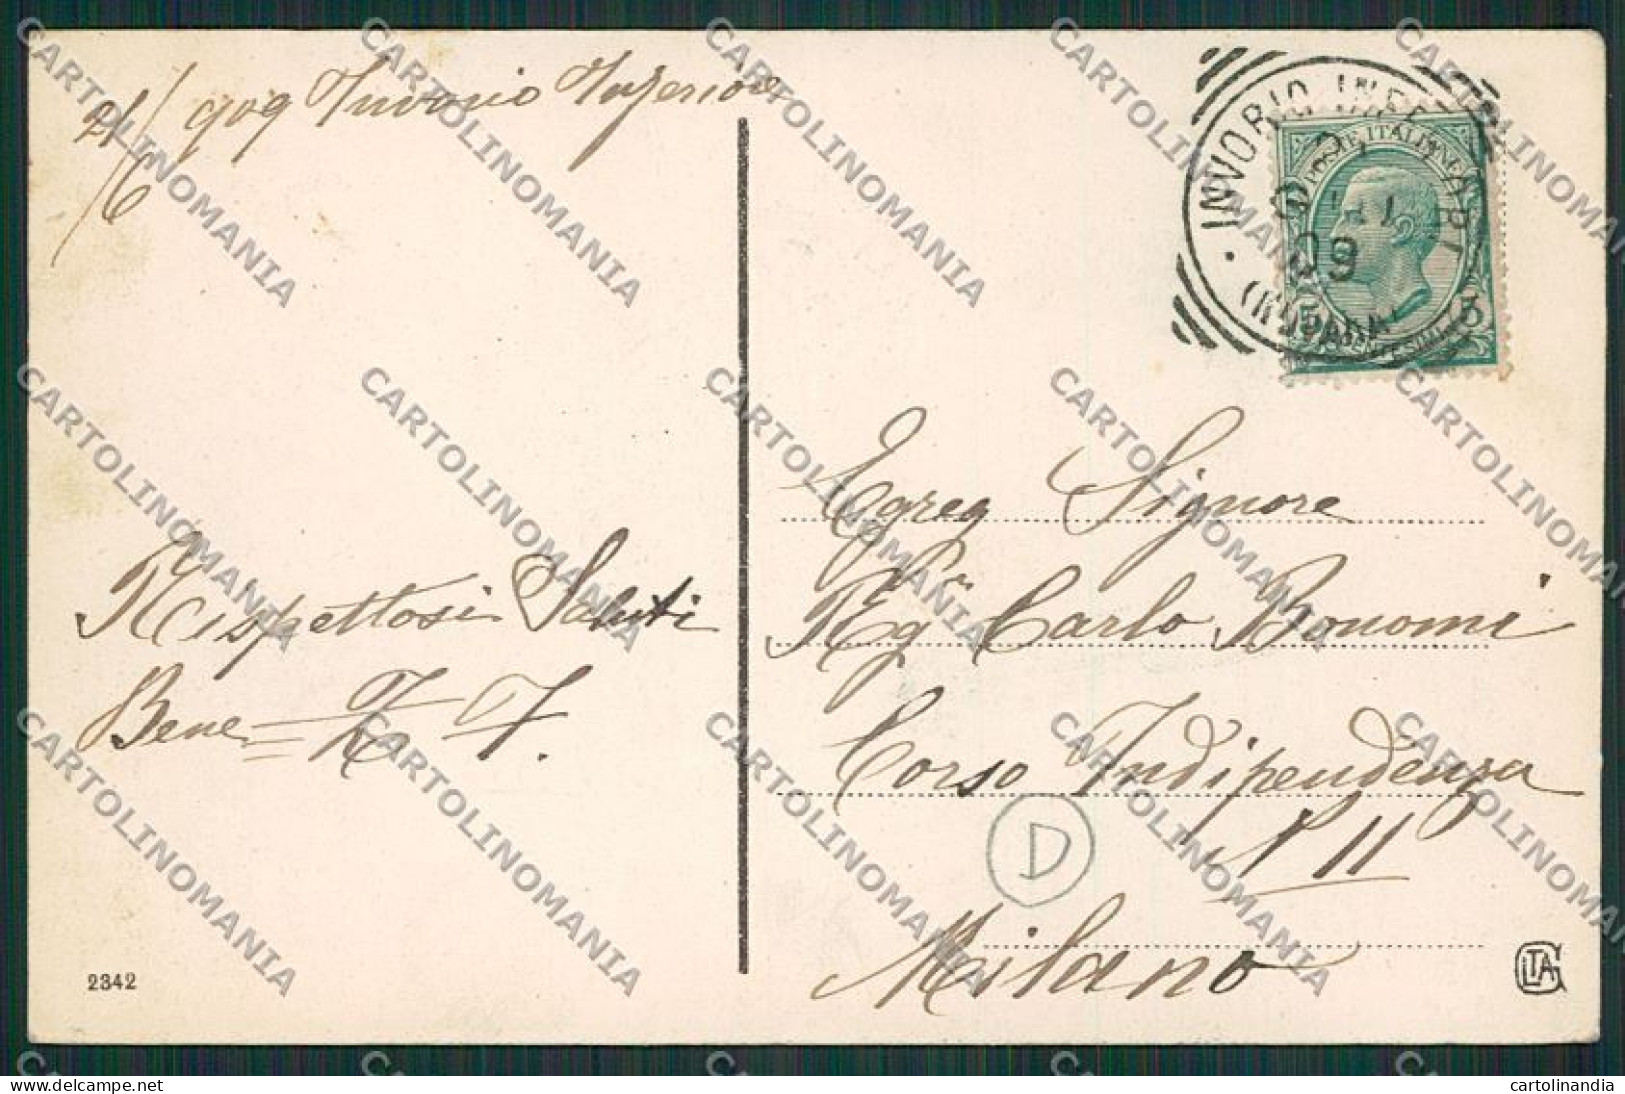 21/6 909 Invorio Inferiore
INVORIO INFER
09
POSTE ITALIANE
5 5
Egreg Signore
Rispettosi Saluti
Rag Carlo Bonomi
Bene
Corso Indipendenza
N 11
D
Milano
2342
LTA G
CARTOLINOMANIA
delcampe.net
cartolinandia